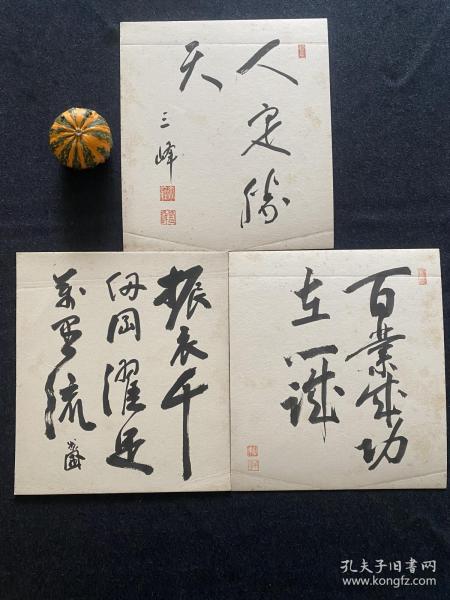 人定勝
天
三峰
振衣千
仞岡濯足
萬里流
百業成功
在一誠
孔夫子旧书网
www.kongfz.com